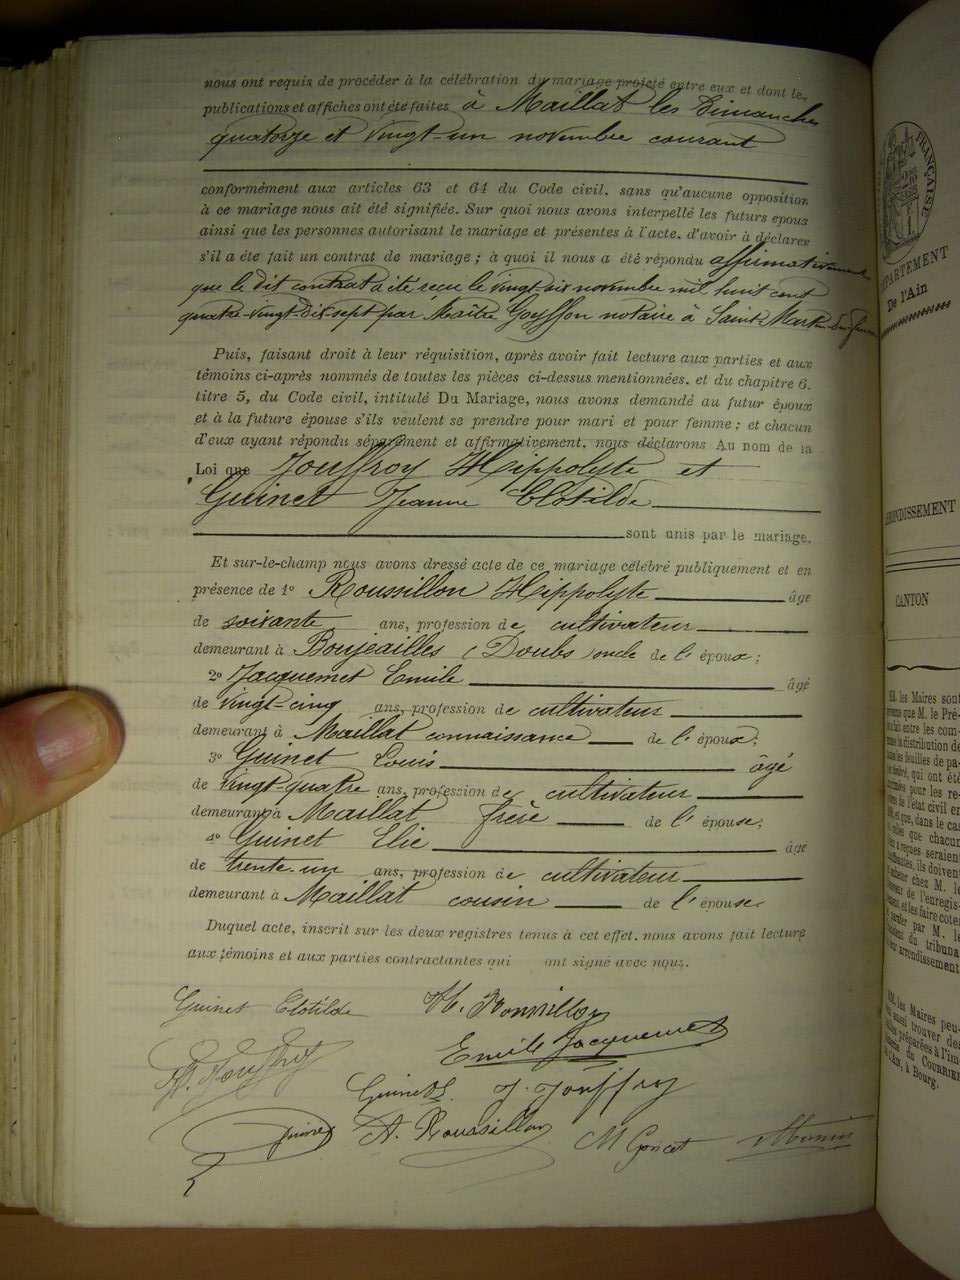 nous ont requis de procéder à la célébration du mariage projeté entre eux et dont les
publications et affiches ont été faites à Maillat les Dimanches
quatorze et vingt-un novembre courant
conformément aux articles 63 et 64 du Code civil, sans qu'aucune opposition
à ce mariage nous ait été signifiée. Sur quoi nous avons interpellé les futurs époux
ainsi que les personnes autorisant le mariage et présentes à l'acte, d'avoir à déclarer
s'il a été fait un contrat de mariage ; à quoi il nous a été répondu affirmativement
que le dit contrat a été reçu le vingt-six novembre mil huit cent
quatre-vingt-dix sept par Maître Goyffon notaire à Saint-Martin-du-Frêne
Puis, faisant droit à leur réquisition, après avoir fait lecture aux parties et aux
témoins ci-après nommés de toutes les pièces ci-dessus mentionnées, et du chapitre 6,
titre 5, du Code civil, intitulé Du Mariage, nous avons demandé au futur époux
et à la future épouse s'ils veulent se prendre pour mari et pour femme ; et chacun
d'eux ayant répondu séparément et affirmativement, nous déclarons Au nom de la
Loi que Jouffroy Hippolyte et
Guinet Jeanne Clotilde
sont unis par le mariage.
Et sur-le-champ nous avons dressé acte de ce mariage célébré publiquement et en
présence de 1° Roussillon Hippolyte âgé
de soixante ans, profession de cultivateur
demeurant à Boujeailles (Doubs) oncle de l'époux ;
2° Jacquemet Emile âgé
de vingt-cinq ans, profession de cultivateur
demeurant à Maillat connaissance de l'époux ;
3° Guinet Louis âgé
de vingt-quatre ans, profession de cultivateur
demeurant à Maillat frère de l'épouse ;
4° Guinet Elie âgé
de trente-un ans, profession de cultivateur
demeurant à Maillat cousin de l'épouse
Duquel acte, inscrit sur les deux registres tenus à cet effet, nous avons fait lecture
aux témoins et aux parties contractantes qui ont signé avec nous.
Guinet Clotilde H. Roussillon
H. Jouffroy Emile Jacquemet
Guinet L. J. Jouffroy
Guinet A. Roussillon M Goncet
FRANÇAISE
DÉPARTEMENT
De l'Ain
ARRONDISSEMENT
CANTON
MM. les Maires sont
que M. le Pré-
fait entre les com-
la distribution de
les feuilles de pa-
qui ont été
pour les re-
de l'état civil en
et que, dans le cas
celles que chacun
à reçues seraient
ils doivent
chez M. le
de l'enregis-
et les faire coter
parafer par M. le
du tribunal
arrondissement
MM. les Maires peu-
aussi trouver des
préparées à l'im-
du COURRIER
DE L'AIN, à Bourg.